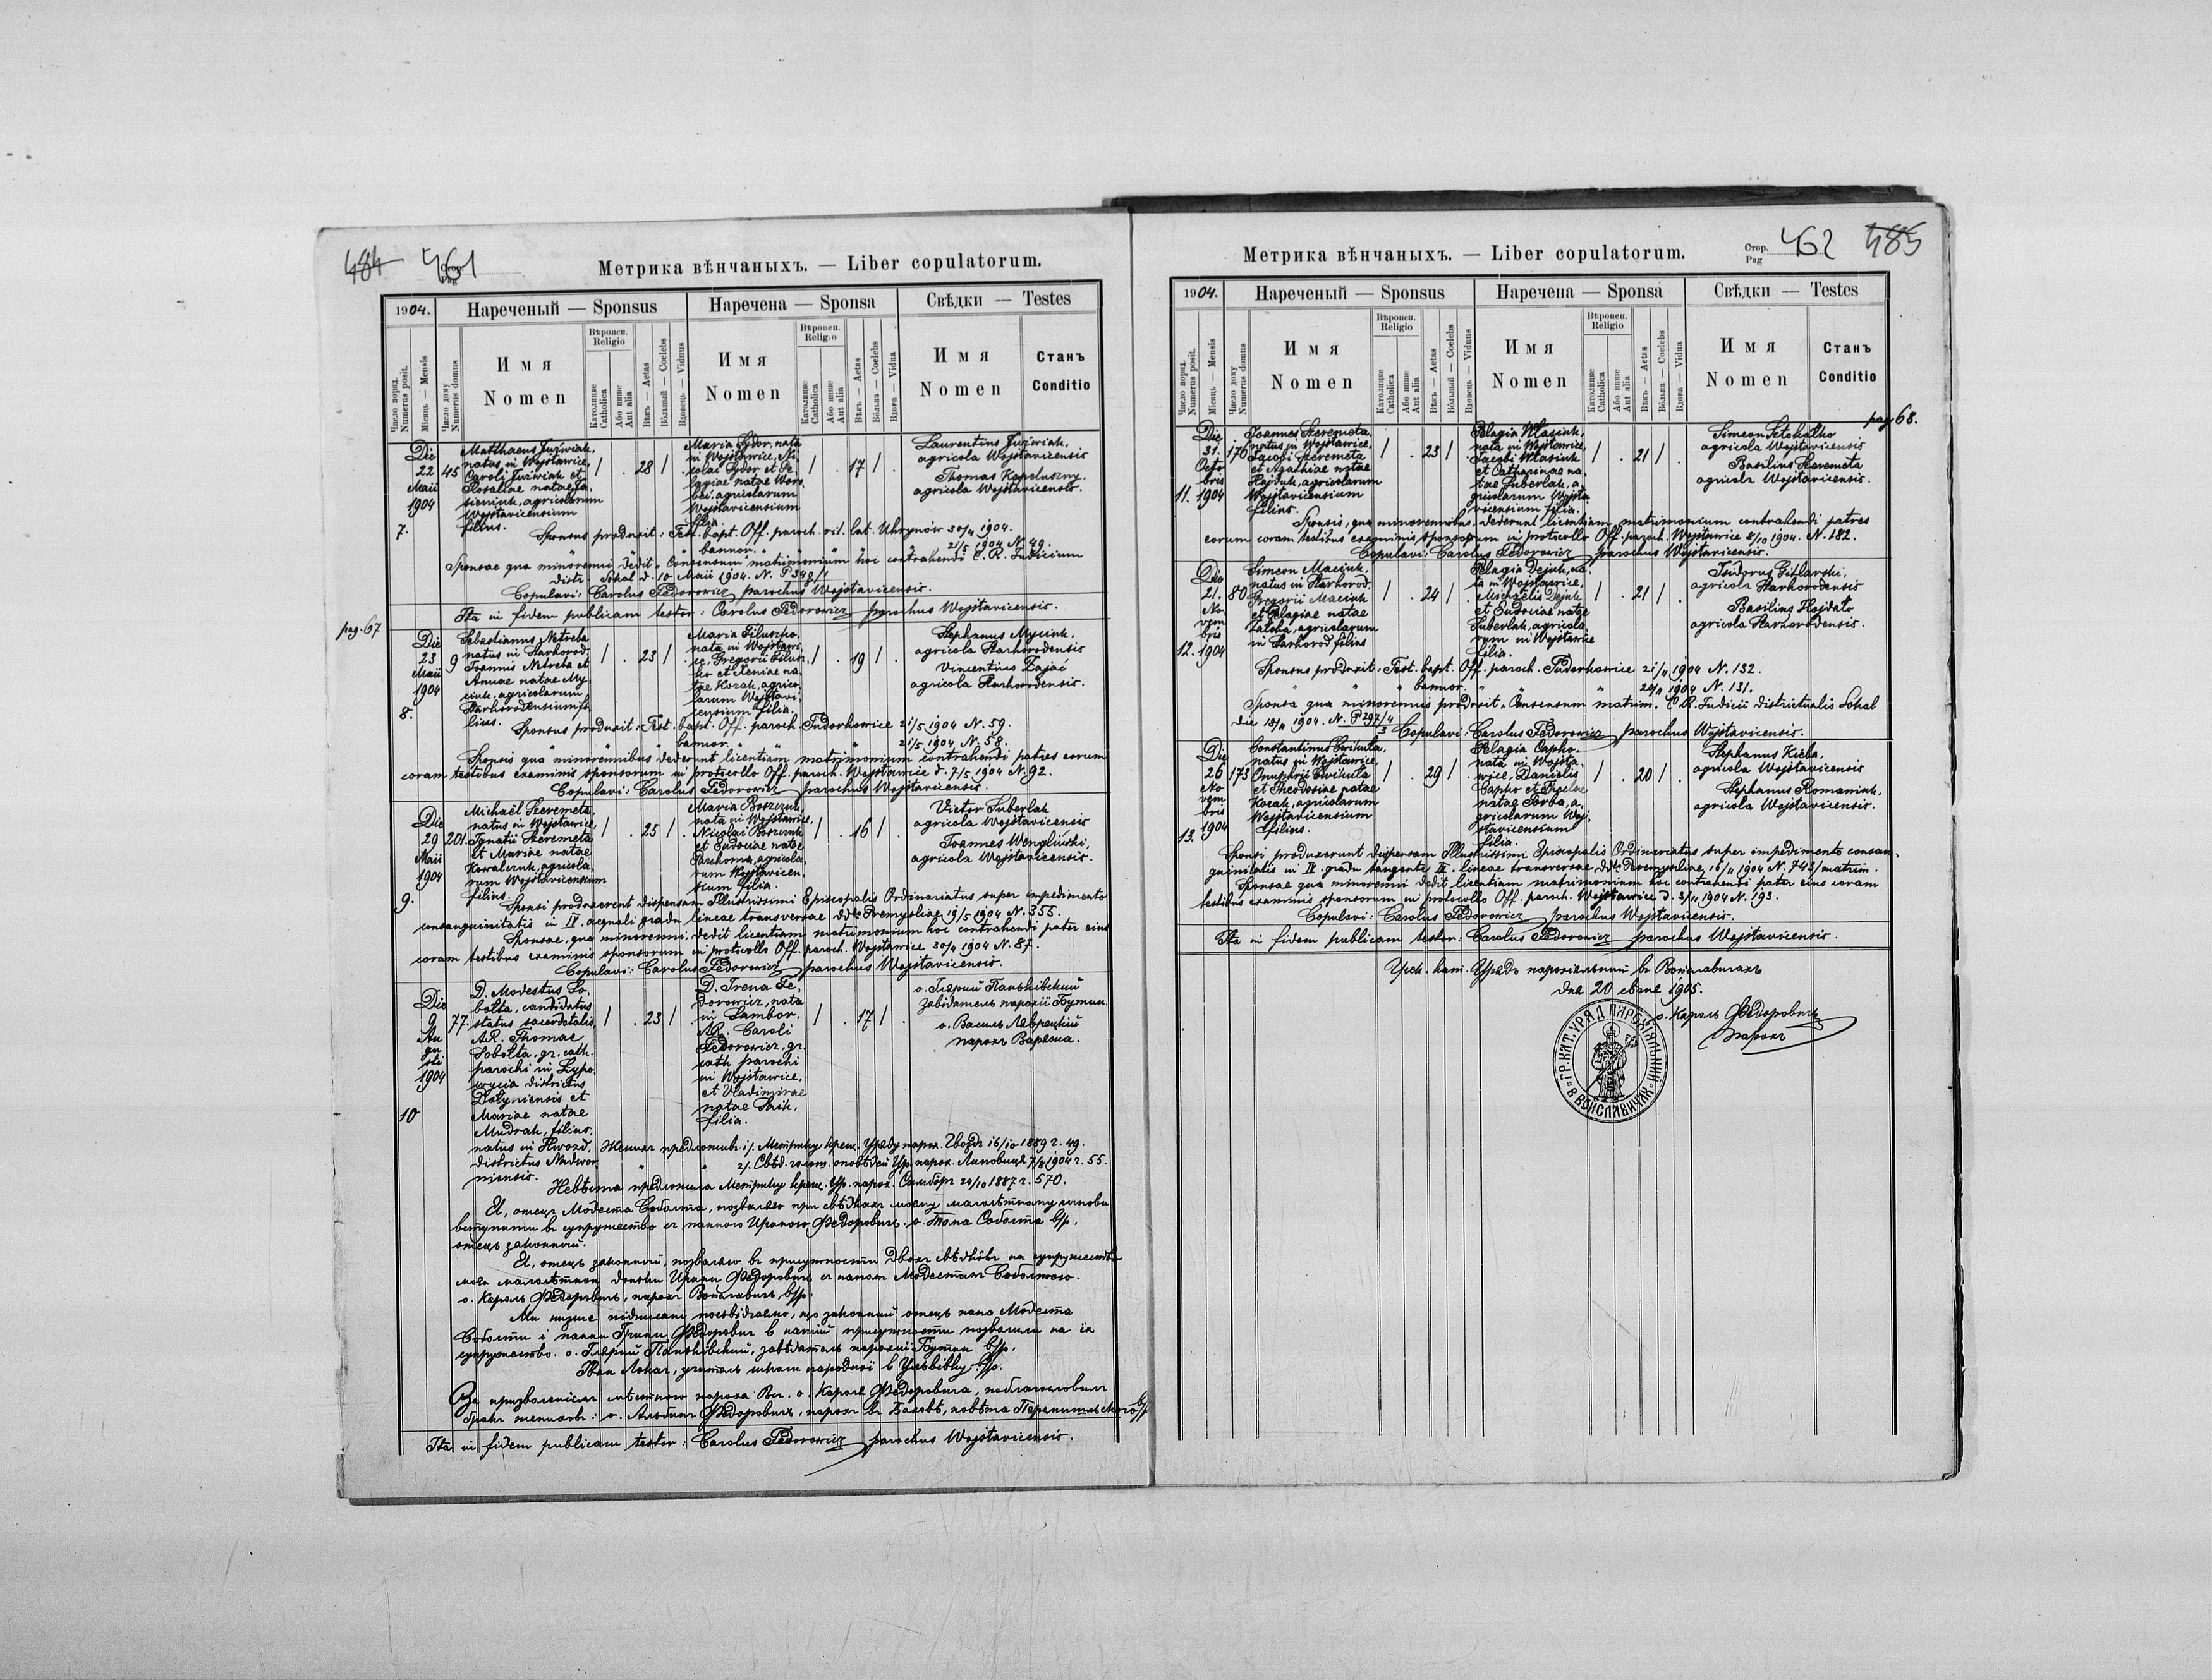 484 461
Pag
Метрика вѣнчаныхъ. — Liber copulatorum.
1904.
Нареченый — Sponsus
Наречена — Sponsa
Свѣдки — Testes
Число поряд.
Numerus posit.
Мѣсяць — Mensis
Число дому
Numerus domus
Имя
Nomen
Вѣроисп.
Religio
Католицке
Catholica
Або инше
Aut alia
Вѣкъ — Aetas
Вôльный — Coelebs
Вдовець — Viduus
Имя
Nomen
Вѣроисп.
Religio
Католицке
Catholica
Або инше
Aut alia
Вѣкъ — Aetas
Вôльна — Coelebs
Вдова — Vidua
Имя
Nomen
Станъ
Conditio
7.
Die
22
Maii
1904
45
Matthaeus Juźwiak,
natus in Wojsławice,
Caroli Juźwiak et
Rosaliae natae
agricolarum
Wojslavicensium
filius.
1 . 28 1 .
Maria Sydor, nata
in Wojsławice, Ni-
colai Sydor et Pe-
lagiae natae Woro-
bec, agricolarum
Wojslavicensium
filia.
1 . 17 1 .
Laurentius Juźwiak,
agricola Wojslavicensis
Thomas Kapeluszny,
agricola Wojslavicensis.
Sponsus produxit: Test. bapt. Off. paroch. rit. lat. Uhrynów 30/4 1904.
" " " bannor. " " " " " 21/5 1904 N. 49.
Sponsae qua minorenni dedit Consensum matrimonium hoc contrahendi C. R. Judicium
distr. Sokal d. 10 Maii 1904. N. P
Copulavi: Carolus Fedorowicz parochus Wojslavicensis.
Ita in fidem publicam testor: Carolus Fedorowicz parochus Wojslavicensis.
pag. 67
8.
Die
23
Maii
1904
9
Sebastianus Netreba
natus in Starhorod,
Joannis Netreba et
Annae natae My-
ciuk, agricolarum
Starhorodensium fi-
lius.
1 . 23 1 .
Maria Filuszko,
nata in Wojsławi-
ce, Gregorii Filusz-
ko et Xeniae na-
tae Kozak, agrico-
larum Wojslavi-
censium filia.
1 . 19 1 .
Stephanus Myciuk,
agricola Starhorodensis
Vincentius Zając
agricola Starhorodensis.
Sponsus produxit: Test. bapt. Off. paroch. Tudorkowice 21/5 1904 N. 59.
" " " bannor. " " " 21/5 1904 N. 58.
Sponsis qua minorennibus dederunt licentiam matrimonium contrahendi patres eorum
coram testibus examinis sponsorum in protocollo Off. paroch. Wojsławice d. 7/5 1904 N. 92.
Copulavi: Carolus Fedorowicz parochus Wojslavicensis.
9.
Die
29
Maii
1904
201.
Michaël Szeremeta,
natus in Wojsławice,
Ignatii Szeremeta
et Mariae natae
Kowalczuk, agricola-
rum Wojslavicensium
filius.
1 . 25 1 .
Maria Boszczuk,
nata in Wojsławice,
Nicolai Boszczuk
et Eudociae natae
Parchoma, agricola-
rum Wojslavicen-
sium filia.
1 . 16 1 .
Victor Suberlak
agricola Wojslavicensis
Joannes Wengliński,
agricola Wojslavicensis.
Sponsi produxerunt dispensam Illustrissimi Episcopalis Ordinariatus super impedimento
consanguinitatis in IV. aequali gradu lineae transversae ddto. Premysliae 19/5 1904 N. 355.
Sponsae, qua minorenni, dedit licentiam matrimonium hoc contrahendi pater eius
coram testibus examinis sponsorum in protocollo Off. paroch. Wojsławice 30/4 1904 N. 87.
Copulavi: Carolus Fedorowicz parochus Wojslavicensis.
10
Die
9
Au-
gu-
sti
1904
77.
D. Modestus So-
bolta, candidatus
status sacerdotalis,
A.R. Thomae
Sobolta, gr. cath.
parochi in Lypo-
wycia districtus
Dolyniensis et
Mariae natae
Mudrak, filius,
natus in Hwozd,
districtus Nadwor-
niensis.
1 . 23 1 .
D. Irena Fe-
dorowicz, nata
in Sambor,
A.R. Caroli
Fedorowicz, gr.
cath. parochi
in Wojsławice,
et Vladimirae
natae
filia.
1 . 17 1 .
о. Іляріи Паньківский
завѣдатель парохіи Бутын.
о. Василь Лаврецкій
парохъ Варяжа.
Женихъ предложивъ: 1/. Метрику крещ. Уряду парох. Гвоздъ 16/10 1889 г. 49.
" " 2/. Свѣд. голош. оповѣдей Ур. парох. Липовиця 7/8 1904 г. 55.
Невѣста предложила Метрику крещ. Ур. парох. Самбôръ 20/10 1887 г. 570.
Я, отець Модеста Соболта, позваляю при свѣдкахъ моему малолѣтному сынови
вступити въ супружество съ панною Иреною Федоровичъ. о. Тома Соболта в/р.
отець законный.
Я, отець законный, позваляю въ присутности двохъ свѣдкôвъ на супружество
моєи малолѣтнои доньки Ирины Федоровичъ съ паномъ Модестомъ Соболтою.
о. Кароль Федоровичъ, парохъ Воиславичъ в/р.
Ми низше підписані посвідчаємо, що законний отець пана Модеста
Соболти і панни Ірини Федорович в нашій присутности позволили на їх
супружество. о. Іляриї Паньківський, завѣдатель парохиї Бутин в/р.
Іван учитель школи народної в Угнівку. в/р.
За призволенієм мѣстного пароха Вс. о. Кароля Федоровича, поблагословилъ
бракъ женихôвъ: о. Альбинъ Федоровичъ, парохъ въ повѣта Перемышльского в/р
Ita in fidem publicam testor: Carolus Fedorowicz parochus Wojslavicensis.
Метрика вѣнчаныхъ. — Liber copulatorum.
Стор.
Pag
462 485
1904.
Нареченый — Sponsus
Наречена — Sponsa
Свѣдки — Testes
Число поряд.
Numerus posit.
Мѣсяць — Mensis
Число дому
Numerus domus
Имя
Nomen
Вѣроисп.
Religio
Католицке
Catholica
Або инше
Aut alia
Вѣкъ — Aetas
Вôльный — Coelebs
Вдовець — Viduus
Имя
Nomen
Вѣроисп.
Religio
Католицке
Catholica
Або инше
Aut alia
Вѣкъ — Aetas
Вôльна — Coelebs
Вдова — Vidua
Имя
Nomen
Станъ
Conditio
pag. 68.
11.
Die
31.
Octo-
bris
1904
176
Joannes Szeremeta,
natus in Wojsławice,
Jacobi Szeremeta
et Agathiae natae
Hajduk, agricolarum
Wojslavicensium
filius.
1 . 23 1 .
Pelagia Własiuk,
nata in Wojsławice,
Jacobi Własiuk
et Catharinae na-
tae Suberlak, a-
gricolarum Wojsla-
vicensium filia.
1 . 21 1 .
Simeon
agricola Wojslavicensis
Basilius Szeremeta
agricola Wojslavicensis.
Sponsis, qua minorennibus, dederunt licentiam matrimonium contrahendi patres
eorum coram testibus examinis sponsorum in protocollo Off. paroch. Wojsławice 8/10 1904. N. 182.
Copulavi: Carolus Fedorowicz parochus Wojslavicensis.
12.
Die
21.
No-
vem-
bris
1904
80
Simeon Maciuk,
natus in Starhorod,
Gregorii Maciuk
et Pelagiae natae
Załoha, agricolarum
in Starhorod filius
1 . 24 1 .
Pelagia Dejuk, na-
ta in Wojsławice,
Michaëlis Dejuk
et Eudociae natae
Suberlak, agricola-
rum in Wojsławice
filia.
1 . 21 1 .
Isidorus Giblarski,
agricola Starhorodensis
Basilius Hojdało
agricola Starhorodensis.
Sponsus produxit: Test. bapt. Off. paroch. Tudorkowice 21/11 1904 N. 132.
" " " bannor. " " " 20/11 1904 N. 131.
Sponsa qua minorennis produxit Consensum matrim. C. R. Judicii districtualis Sokal
die 18/11 1904. N. P 297/4
3
Copulavi: Carolus Fedorowicz parochus Wojslavicensis.
13.
Die
26
No-
vem-
bris
1904
173
Constantinus Ćwikuła,
natus in Wojsławice,
Onuphrii Ćwikuła
et Theodosiae natae
Kozak, agricolarum
Wojslavicensium
filius.
1 . 29 1 .
Pelagia Capko,
nata in Wojsła-
wice, Danielis
Capko et Theclae
natae Torba, a-
gricolarum Woj-
slavicensium
filia.
1 . 20 1 .
Stephanus Kieba,
agricola Wojslavicensis
Stephanus Romaniuk,
agricola Wojslavicensis.
Sponsi produxerunt dispensam Illustrissimi Episcopalis Ordinariatus super impedimento consan-
guinitatis in IV. gradu tangente III. lineae transversae ddto. Peremysliae 16/11 1904 N. 743/matrim.
Sponsae qua minorenni dedit licentiam matrimonium hoc contrahendi pater eius coram
testibus examinis sponsorum in protocollo Off. paroch. Wojsławice d. 3/11 1904 N. 193.
Copulavi: Carolus Fedorowicz parochus Wojslavicensis.
Ita in fidem publicam testor: Carolus Fedorowicz parochus Wojslavicensis.
Урядъ парохіяльный въ Воиславичахъ
дня 20 1905.
о. Кароль Федоровичъ
парохъ
ГР. КАТ. УРЯД ПАРОХІЯЛЬНИЙ
В ВОИСЛАВИЧАХ